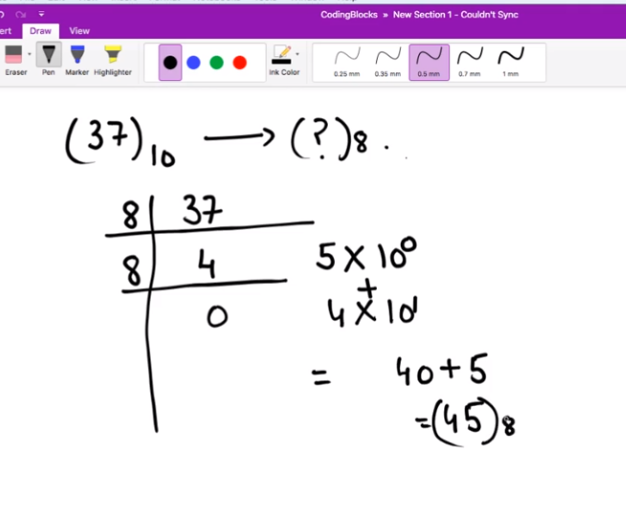 CodingBlocks » New Section 1 - Couldn't Sync
ert Draw View
Eraser Pen Marker Highlighter Ink Color 0.25 mm 0.35 mm 0.5 mm 0.7 mm 1 mm
(37)₁₀ ⟶ (?)₈ .
8 | 37
8 | 4 5 × 10⁰
+
0 4 × 10¹
= 40 + 5
= (45)₈